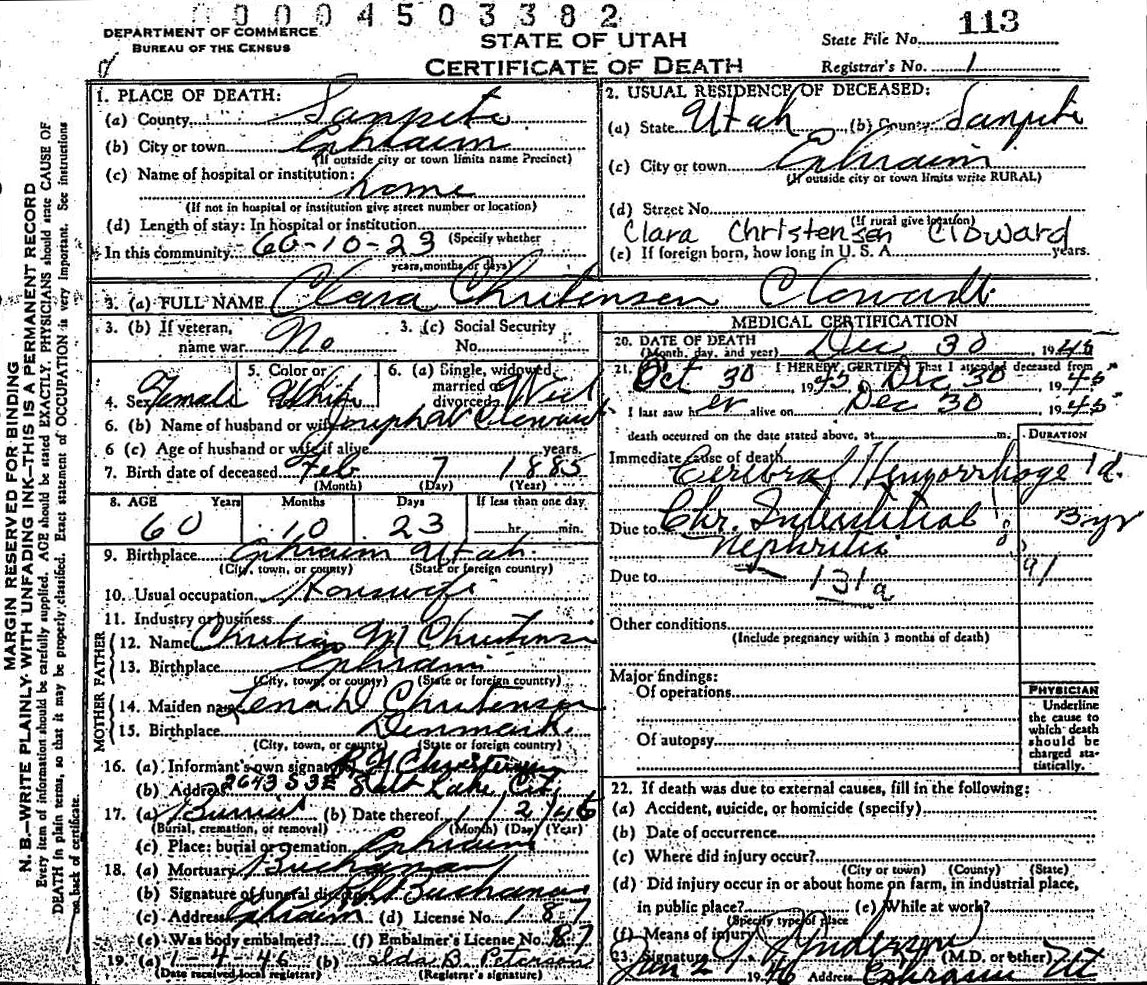 0004503382
113
DEPARTMENT OF COMMERCE
BUREAU OF THE CENSUS
STATE OF UTAH
CERTIFICATE OF DEATH
State File No.
Registrar's No. 1
MARGIN RESERVED FOR BINDING
N. B.—WRITE PLAINLY WITH UNFADING INK—THIS IS A PERMANENT RECORD
Every item of information should be carefully supplied. AGE should be stated EXACTLY. PHYSICIANS should state CAUSE OF
DEATH in plain terms, so that it may be properly classified. Exact statement of OCCUPATION is very important. See instructions
on back of certificate.
1. PLACE OF DEATH:
(a) County Sanpete
(b) City or town Ephraim
(If outside city or town limits name Precinct)
(c) Name of hospital or institution:
home
(If not in hospital or institution give street number or location)
(d) Length of stay: In hospital or institution
In this community 60-10-23 (Specify whether
years, months or days)
2. USUAL RESIDENCE OF DECEASED:
(a) State Utah (b) County Sanpete
(c) City or town Ephraim
(If outside city or town limits write RURAL)
(d) Street No.
(If rural give location)
Clara Christensen Cloward
(e) If foreign born, how long in U. S. A. years.
3. (a) FULL NAME Clara Christensen Cloward
3. (b) If veteran, name war No
3. (c) Social Security No.
4. Sex Female
5. Color or White
6. (a) Single, widowed, married or divorced Wid
6. (b) Name of husband or wife Joseph W Cloward
6 (c) Age of husband or wife if alive years.
7. Birth date of deceased Feb 7 1885
(Month) (Day) (Year)
8. AGE Years Months Days If less than one day
60 10 23 hr. min.
9. Birthplace Ephraim Utah
(City, town, or county) (State or foreign country)
10. Usual occupation Housewife
11. Industry or business
FATHER
12. Name Christian M Christensen
13. Birthplace Ephraim
(City, town, or county) (State or foreign country)
MOTHER
14. Maiden name Lena D Christensen
15. Birthplace Denmark
(City, town, or county) (State or foreign country)
16. (a) Informant's own signature
(b) Address 2643 S 3 E Salt Lake City
17. (a) Burial (b) Date thereof 1 2 46
(Burial, cremation, or removal) (Month) (Day) (Year)
(c) Place: burial or cremation Ephraim
18. (a) Mortuary Buchanan
(b) Signature of funeral director Buchanan
(c) Address Ephraim (d) License No. 187
(e) Was body embalmed? (f) Embalmer's License No. 87
19. (a) 1-4-46 (b) Elda B. Peterson
(Date received local registrar) (Registrar's signature)
MEDICAL CERTIFICATION
20. DATE OF DEATH
(Month, day, and year) Dec 30 1945
21. I HEREBY CERTIFY That I attended deceased from
Oct 30 1945, Dec 30, 1945
I last saw her alive on Dec 30, 1945
death occurred on the date stated above, at m.
DURATION
Immediate cause of death
Cerebral Hemorrhage 1 d.
Due to Chr. Interstitial 3 yr
Nephritis
Due to 131a
Other conditions
(Include pregnancy within 3 months of death)
Major findings:
Of operations
Of autopsy
PHYSICIAN
Underline
the cause to
which death
should be
charged sta-
tistically.
22. If death was due to external causes, fill in the following:
(a) Accident, suicide, or homicide (specify)
(b) Date of occurrence
(c) Where did injury occur?
(City or town) (County) (State)
(d) Did injury occur in or about home on farm, in industrial place,
in public place? (e) While at work?
(Specify type of place
(f) Means of injury
23. Signature Anderson (M.D. or other)
Jan 2 1946 Address Ephraim Ut